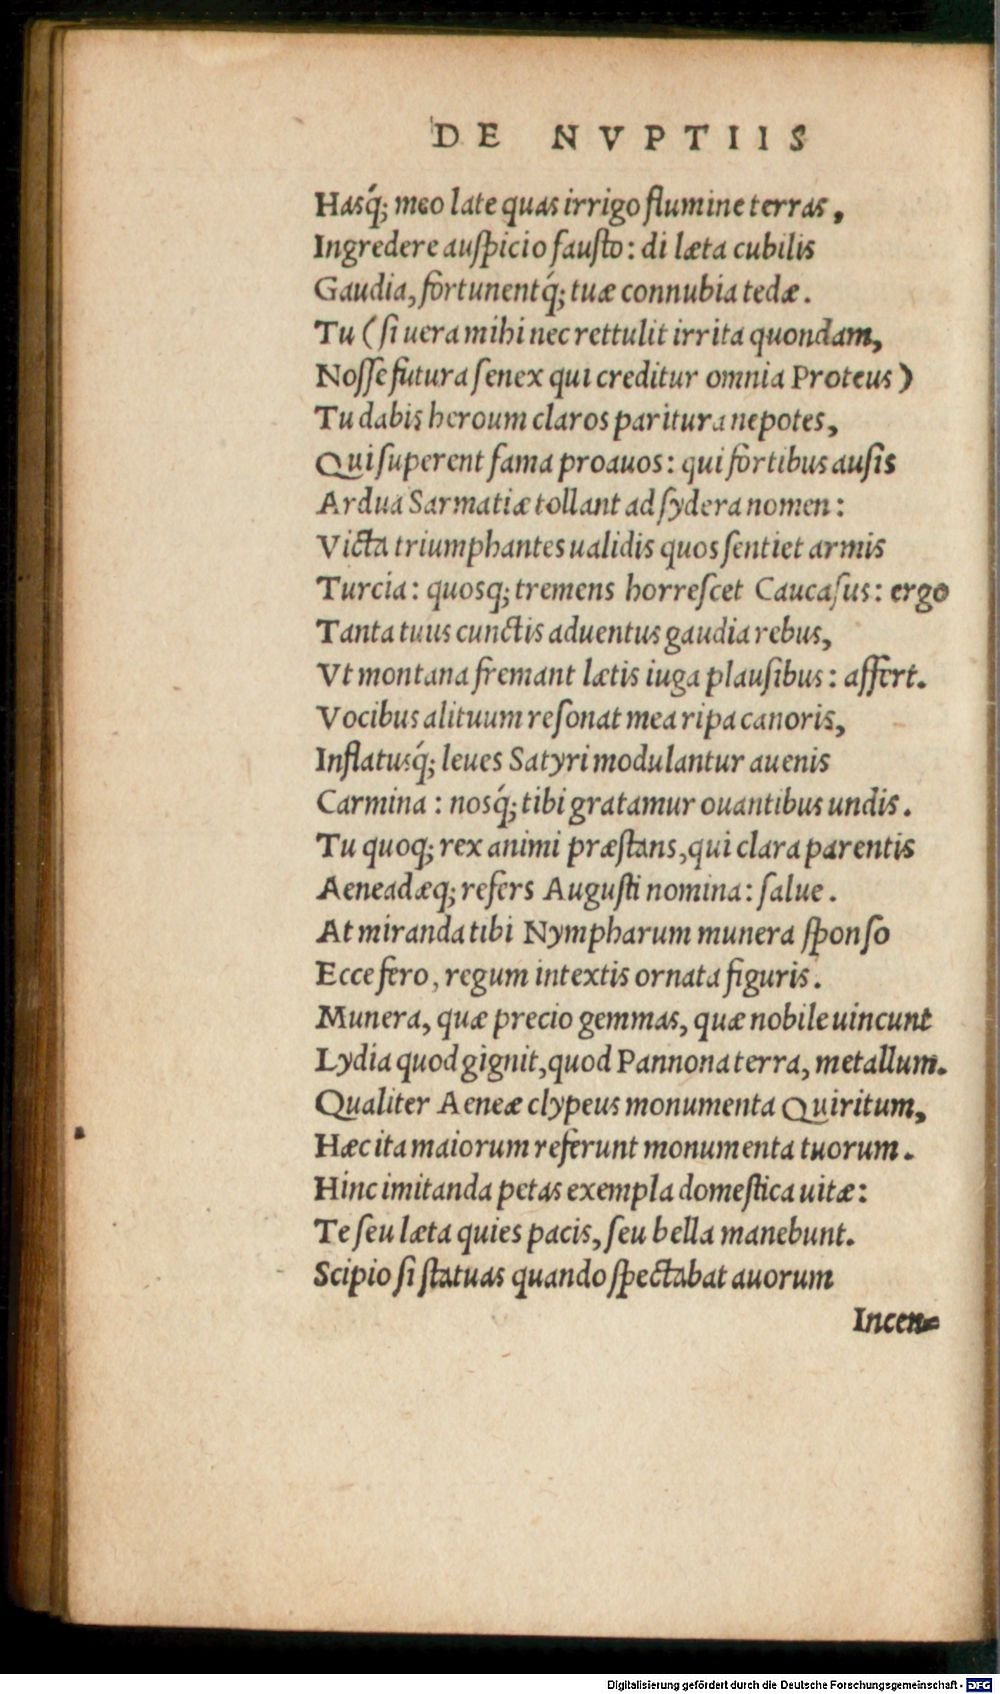 DE NVPTIIS
Hasq́; meo late quas irrigo flumine terras,
Ingredere auſpicio fauſto: di læta cubilis
Gaudia, fortunentq́; tuæ connubia tedæ.
Tu (ſi uera mihi nec rettulit irrita quondam,
Noſſe futura ſenex qui creditur omnia Proteus)
Tu dabis heroum claros paritura nepotes,
Qui ſuperent fama proauos: qui fortibus auſis
Ardua Sarmatiæ tollant ad ſydera nomen:
Victa triumphantes ualidis quos ſentiet armis
Turcia: quosq; tremens horreſcet Caucaſus: ergo
Tanta tuus cunctis aduentus gaudia rebus,
Vt montana fremant lætis iuga plauſibus: affert.
Vocibus alituum reſonat mea ripa canoris,
Inflatusq́; leues Satyri modulantur auenis
Carmina: nosq́; tibi gratamur ouantibus undis.
Tu quoq; rex animi præſtans, qui clara parentis
Aeneadæq; refers Auguſti nomina: ſalue.
At miranda tibi Nympharum munera ſponſo
Ecce fero, regum intextis ornata figuris.
Munera, quæ precio gemmas, quæ nobile uincunt
Lydia quod gignit, quod Pannona terra, metallum.
Qualiter Aeneæ clypeus monumenta Quiritum,
Hæc ita maiorum referunt monumenta tuorum.
Hinc imitanda petas exempla domeſtica uitæ:
Te ſeu læta quies pacis, ſeu bella manebunt.
Scipio ſi ſtatuas quando ſpectabat auorum
Incen=
Digitalisierung gefördert durch die Deutsche Forschungsgemeinschaft - DFG